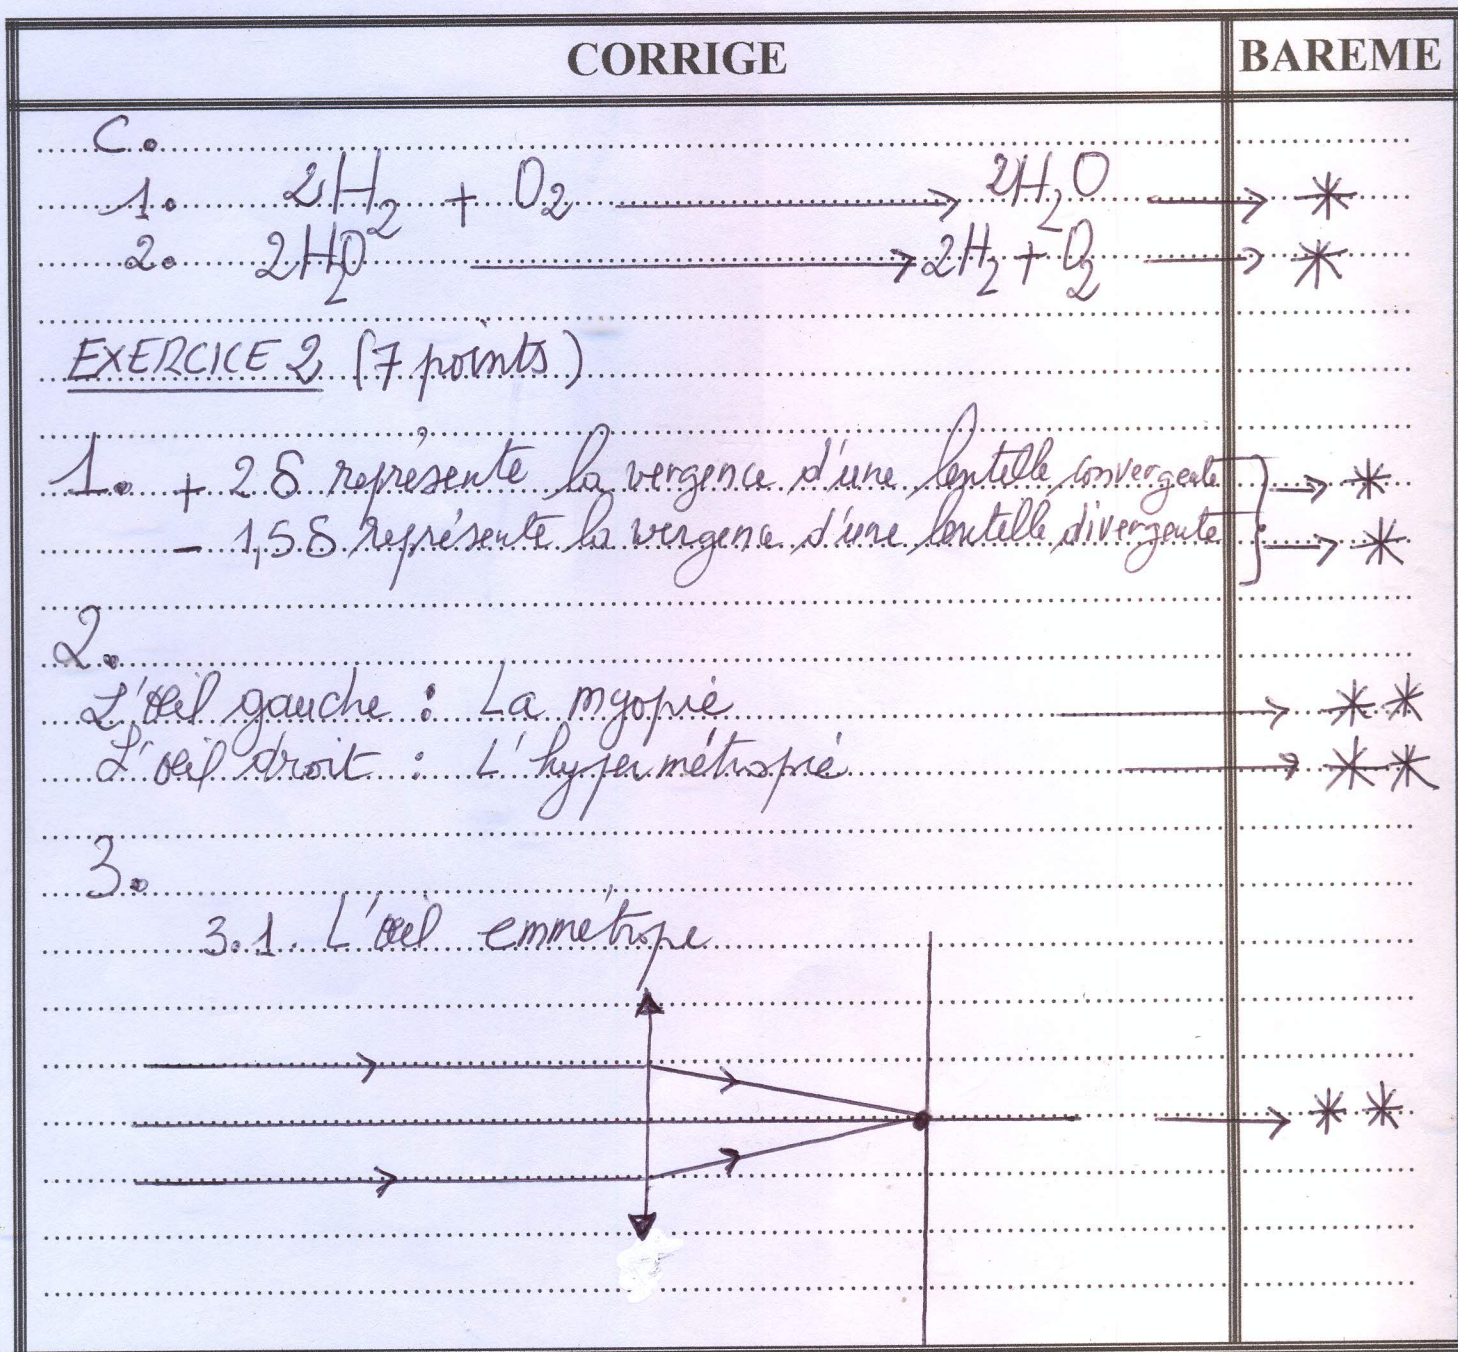 CORRIGE BAREME
C.
1. 2H₂ + O₂ → 2H₂O → *
2. 2H₂O → 2H₂ + O₂ → *
EXERCICE 2 (7 points)
1. + 2 δ représente la vergence d'une lentille convergente → *
- 1,5 δ représente la vergence d'une lentille divergente → *
2.
L'œil gauche : La myopie → * *
L'œil droit : L'hypermétropie → * *
3.
3.1. L'œil emmétrope
→ * *